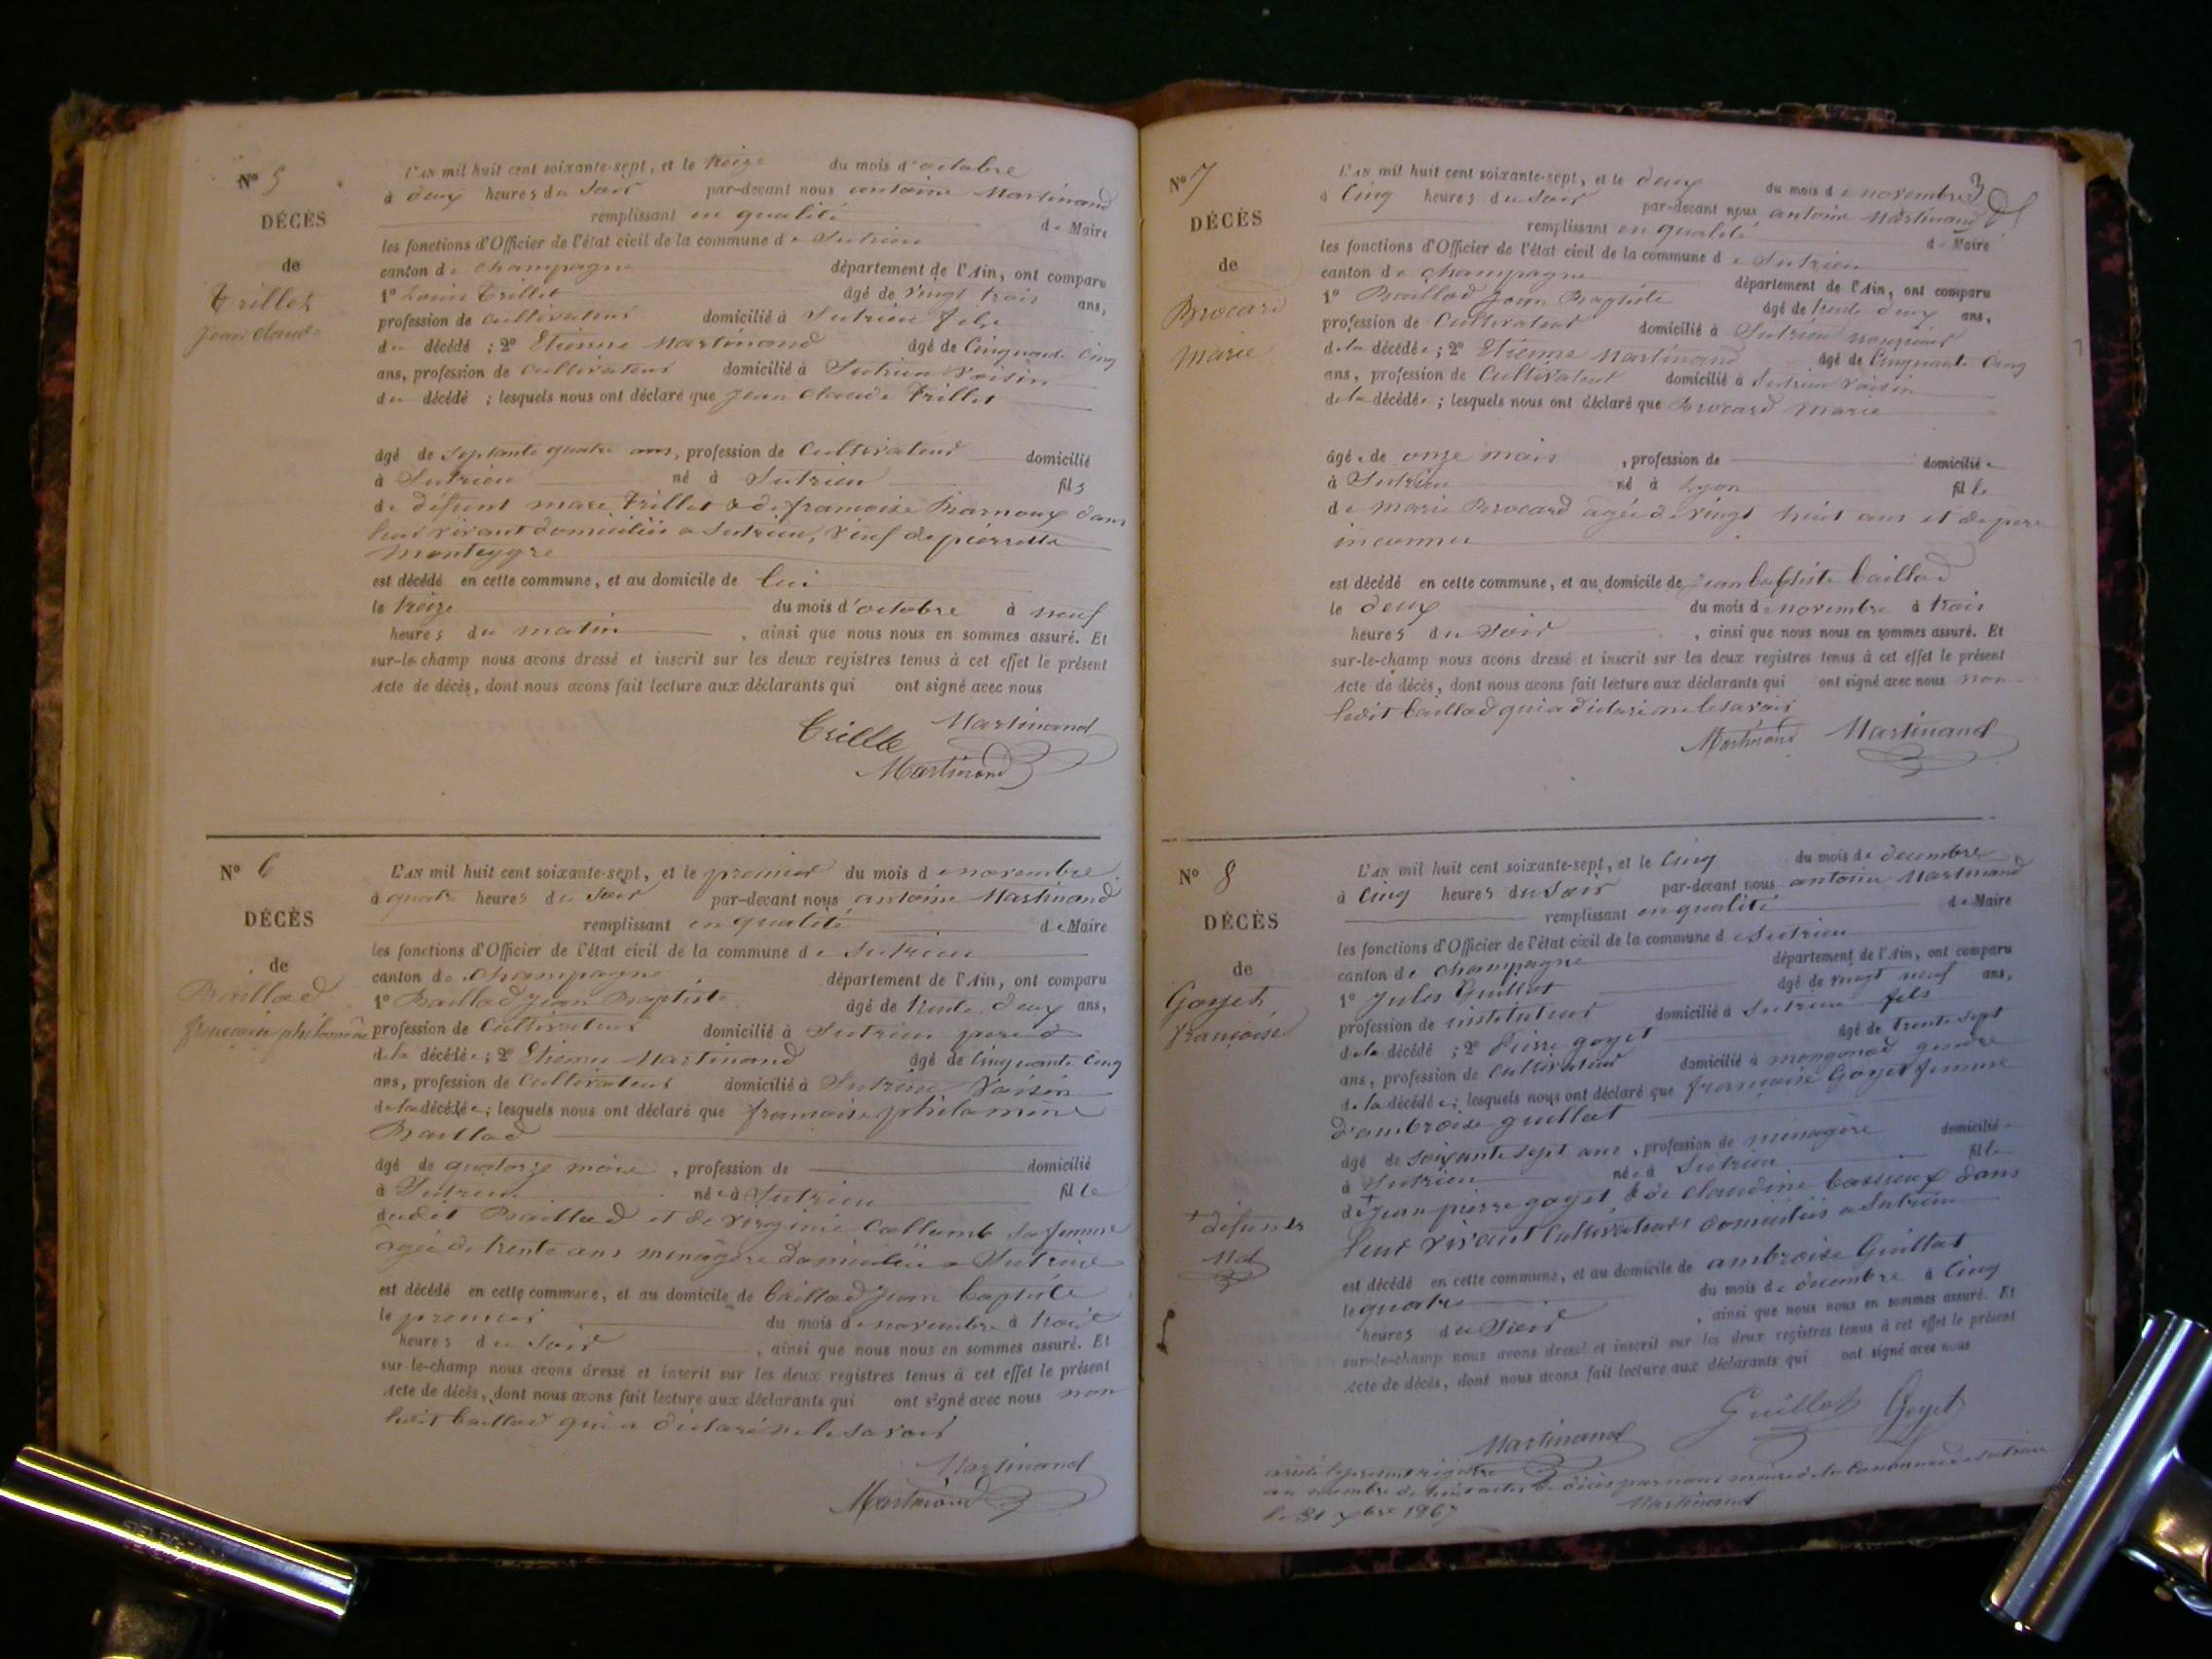 N° 5
DÉCÈS
de
Trillet
Jean Claude
L'AN mil huit cent soixante-sept, et le treize du mois d'octobre
à deux heures du soir par-devant nous antoine Martinand
remplissant en qualité de Maire
les fonctions d'Officier de l'état civil de la commune de Sutrieu
canton de Champagne département de l'Ain, ont comparu
1° Louis Trillet âgé de vingt trois ans,
profession de cultivateur domicilié à Sutrieu fils
du décédé ; 2° Etienne Martinand âgé de cinquante cinq
ans, profession de cultivateur domicilié à Sutrieu voisin
du décédé ; lesquels nous ont déclaré que Jean Claude Trillet
âgé de septante quatre ans, profession de cultivateur domicilié
à Sutrieu né à Sutrieu fils
de défunt marc Trillet & de francoise Barnoux dans
leur vivant domiciliés a Sutrieu, veuf de pierrette
Monteygre
est décédé en cette commune, et au domicile de lui
le treize du mois d'octobre à neuf
heures du matin , ainsi que nous nous en sommes assuré. Et
sur-le-champ nous avons dressé et inscrit sur les deux registres tenus à cet effet le présent
Acte de décès, dont nous avons fait lecture aux déclarants qui ont signé avec nous
Martinand
Trillet
Martinand
N° 6
DÉCÈS
de
Baillod
francoise philomène
L'AN mil huit cent soixante-sept, et le premier du mois de novembre
à quatre heures du soir par-devant nous antoine Martinand
remplissant en qualité de Maire
les fonctions d'Officier de l'état civil de la commune de Sutrieu
canton de Champagne département de l'Ain, ont comparu
1° Baillod Jean Baptiste âgé de trente deux ans,
profession de cultivateur domicilié à Sutrieu pere
de la décédée ; 2° Etienne Martinand âgé de cinquante cinq
ans, profession de cultivateur domicilié à Sutrieu voisin
de la décédée ; lesquels nous ont déclaré que francoise philomène
Baillod
âgé de quatorze mois , profession de domicilié
à Sutrieu née à Sutrieu fille
dudit Baillod et de virginie Collomb sa femme
agée de trente ans menagère domiciliés a Sutrieu
est décédé en cette commune, et au domicile de baillod Jean baptiste
le premier du mois de novembre à trois
heures du soir , ainsi que nous nous en sommes assuré. Et
sur-le-champ nous avons dressé et inscrit sur les deux registres tenus à cet effet le présent
Acte de décès, dont nous avons fait lecture aux déclarants qui ont signé avec nous non
ledit baillod qui a déclaré ne le savoir
Martinand
Martinand
3
N° 7
DÉCÈS
de
Brocard
Marie
L'AN mil huit cent soixante-sept, et le deux du mois de novembre
à cinq heures du soir par-devant nous antoine Martinand
remplissant en qualité de Maire
les fonctions d'Officier de l'état civil de la commune de Sutrieu
canton de Champagne département de l'Ain, ont comparu
1° Baillod Jean Baptiste âgé de trente deux ans,
profession de cultivateur domicilié à Sutrieu nourricier
de la décédée ; 2° Etienne Martinand âgé de cinquante cinq
ans, profession de cultivateur domicilié à Sutrieu voisin
de la décédée ; lesquels nous ont déclaré que Brocard Marie
âgée de onze mois , profession de domiciliée
à Sutrieu né à Lyon fille
de Marie Brocard agée de vingt huit ans et de pere
inconnu
est décédé en cette commune, et au domicile de Jean baptiste baillod
le deux du mois de novembre à trois
heures du soir , ainsi que nous nous en sommes assuré. Et
sur-le-champ nous avons dressé et inscrit sur les deux registres tenus à cet effet le présent
Acte de décès, dont nous avons fait lecture aux déclarants qui ont signé avec nous non
ledit baillod qui a déclaré ne le savoir
Martinand Martinand
N° 8
DÉCÈS
de
Goyet
françoise
L'AN mil huit cent soixante-sept, et le cinq du mois de decembre
à cinq heures du soir par-devant nous antoine Martinand
remplissant en qualité de Maire
les fonctions d'Officier de l'état civil de la commune de Sutrieu
canton de Champagne département de l'Ain, ont comparu
1° Jules Guillot âgé de vingt neuf ans,
profession de instituteur domicilié à Sutrieu fils
de la décédé ; 2° Pierre goyet âgé de trente sept
ans, profession de cultivateur domicilié à mongonod
de la décédée ; lesquels nous ont déclaré que francoise Goyet femme
d'ambroise guillot
âgé de soixante sept ans , profession de menagère domiciliée
à Sutrieu née à Sutrieu fille
de + Jean pierre goyet & de claudine bassieux dans
leur vivant cultivateurs domiciliés a Sutrieu
+ défunts
Md
est décédé en cette commune, et au domicile de ambroise Guillot
le quatre du mois de decembre à cinq
heures du soir , ainsi que nous nous en sommes assuré. Et
sur-le-champ nous avons dressé et inscrit sur les deux registres tenus à cet effet le présent
Acte de décès, dont nous avons fait lecture aux déclarants qui ont signé avec nous
Guillot Goyet
Martinand
arrêté le present régistre
au nombre de huit actes de décès par nous maire de la Commune de Sutrieu
le 31 xbre 1867 Martinand